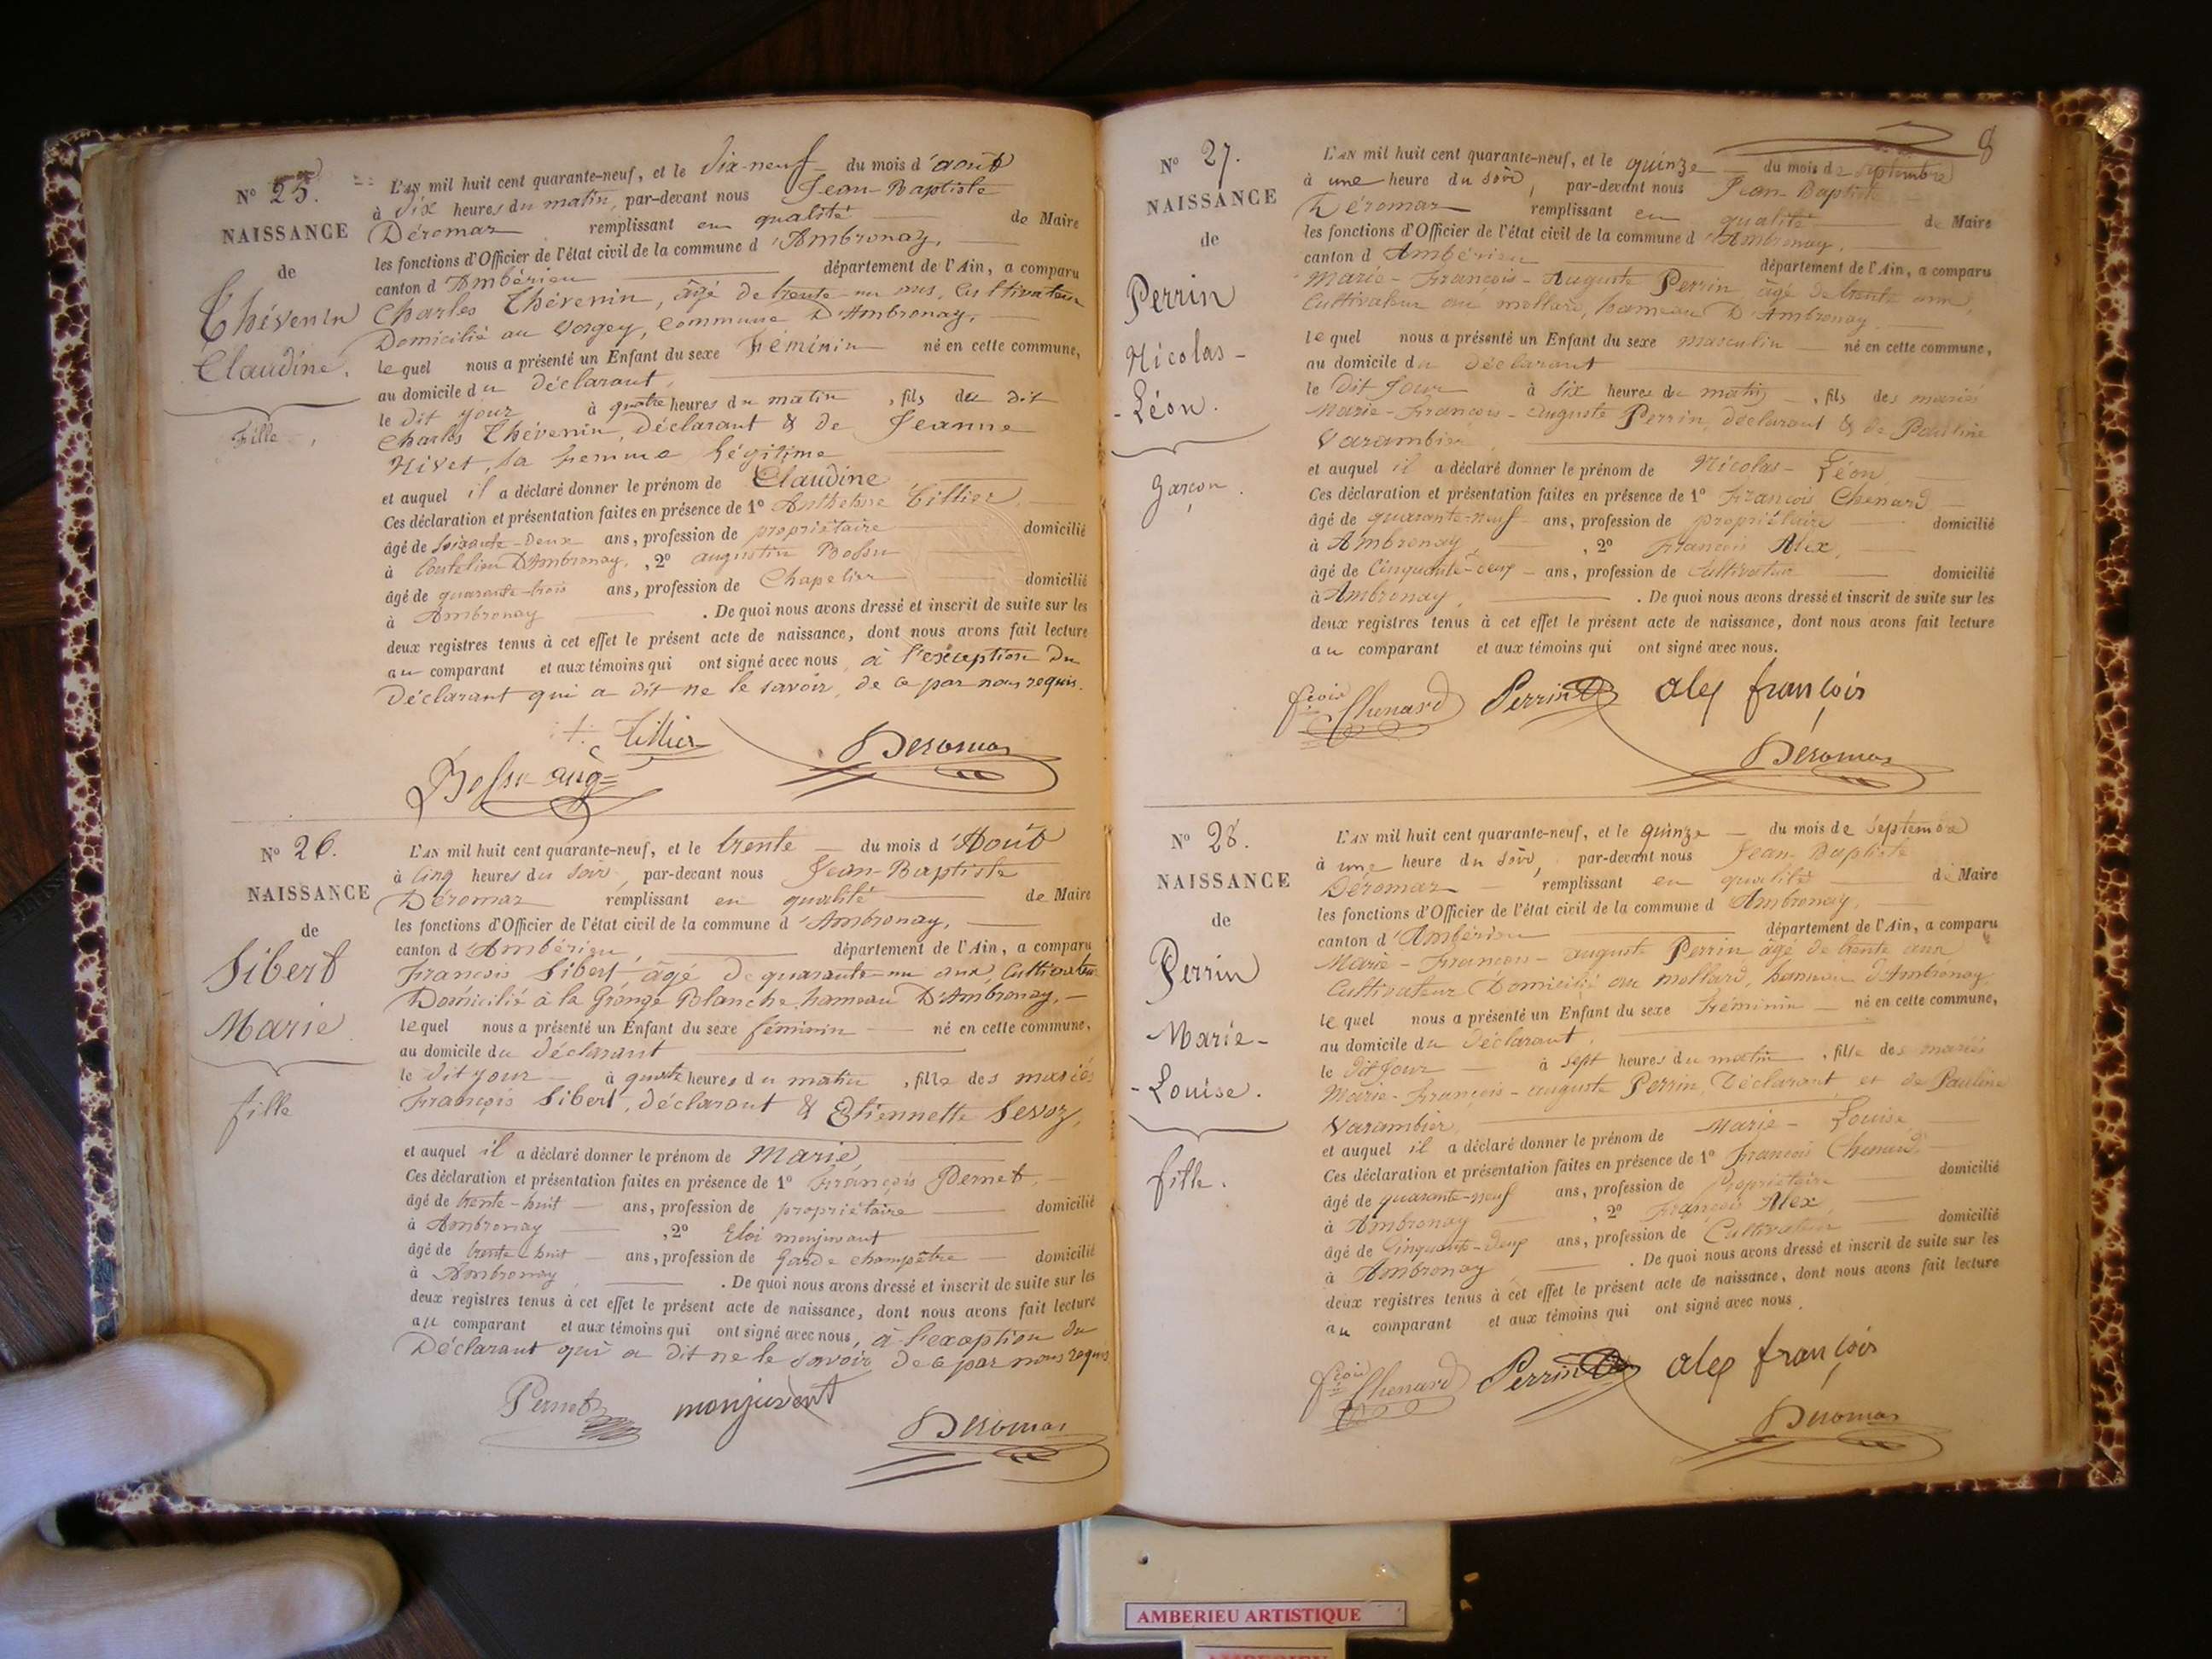 N° 25.
NAISSANCE
de
Thévenin
Claudine.
Fille,
L'AN mil huit cent quarante-neuf, et le dix-neuf du mois d'août
à dix heures du matin, par-devant nous Jean-Baptiste
Déromas remplissant en qualité de Maire
les fonctions d'Officier de l'état civil de la commune d'Ambronay,
canton d'Ambérieu département de l'Ain, a comparu
Charles Thévenin, âgé de trente-un ans, Cultivateur
Domicilié au Vorgey, Commune D'Ambronay,
lequel nous a présenté un Enfant du sexe Féminin né en cette commune,
au domicile du déclarant,
le dit jour à quatre heures du matin, fils du dit
Charles Thévenin, Déclarant & de Jeanne
Nivet, sa femme légitime
et auquel il a déclaré donner le prénom de Claudine
Ces déclaration et présentation faites en présence de 1° Anthelme Tillier,
âgé de soixante-deux ans, profession de propriétaire domicilié
à Coutelieu D'Ambronay, 2° augustin Bossu
âgé de quarante-trois ans, profession de Chapelier domicilié
à Ambronay. De quoi nous avons dressé et inscrit de suite sur les
deux registres tenus à cet effet le présent acte de naissance, dont nous avons fait lecture
au comparant et aux témoins qui ont signé avec nous, à l'exception Du
Déclarant qui a dit ne le savoir, de ce par nous requis.
Tillier
Bossu aug Deromas
N° 26.
NAISSANCE
de
Sibert
Marie
fille
L'AN mil huit cent quarante-neuf, et le trente du mois d'Août
à cinq heures du soir, par-devant nous Jean-Baptiste
Déromas remplissant en qualité de Maire
les fonctions d'Officier de l'état civil de la commune d'Ambronay,
canton d'Ambérieu, département de l'Ain, a comparu
François Sibert, âgé de quarante-un ans, Cultivateur
Domicilié à la Grange Blanche, hameau D'Ambronay,
lequel nous a présenté un Enfant du sexe féminin né en cette commune,
au domicile du déclarant
le dit jour à quatre heures du matin, fille des mariés
François Sibert, déclarant & Etiennette Sevoz,
et auquel il a déclaré donner le prénom de Marie,
Ces déclaration et présentation faites en présence de 1° François Pernet,
âgé de trente-huit ans, profession de propriétaire domicilié
à Ambronay, 2° Eloi monjuvent
âgé de trente-huit ans, profession de Garde champêtre domicilié
à Ambronay, . De quoi nous avons dressé et inscrit de suite sur les
deux registres tenus à cet effet le présent acte de naissance, dont nous avons fait lecture
au comparant et aux témoins qui ont signé avec nous, à l'exception du
Déclarant qui a dit ne le savoir, de ce par nous requis
Pernet monjuvent
Deromas
8
N° 27.
NAISSANCE
de
Perrin
Nicolas-
-Léon.
Garçon.
L'AN mil huit cent quarante-neuf, et le quinze du mois de septembre
à une heure du soir, par-devant nous Jean-Baptiste
Déromas remplissant en qualité de Maire
les fonctions d'Officier de l'état civil de la commune d'Ambronay,
canton d'Ambérieu département de l'Ain, a comparu
Marie-François-Auguste Perrin âgé de trente ans,
Cultivateur au mollard, hameau D'Ambronay
lequel nous a présenté un Enfant du sexe masculin né en cette commune,
au domicile du déclarant
le dit Jour à six heures du matin, fils des mariés
Marie-François-auguste Perrin, déclarant & de Pauline
Varambier
et auquel il a déclaré donner le prénom de Nicolas-Léon
Ces déclaration et présentation faites en présence de 1° François Chenard
âgé de quarante-neuf ans, profession de propriétaire domicilié
à Ambronay, 2° François Alex,
âgé de Cinquante-deux ans, profession de Cultivateur domicilié
à Ambronay, . De quoi nous avons dressé et inscrit de suite sur les
deux registres tenus à cet effet le présent acte de naissance, dont nous avons fait lecture
au comparant et aux témoins qui ont signé avec nous.
fçois Chenard Perrin alex françois
Déromas
N° 28.
NAISSANCE
de
Perrin
Marie-
-Louise.
fille.
L'AN mil huit cent quarante-neuf, et le quinze du mois de septembre
à une heure du soir, par-devant nous Jean-Baptiste
Déromas remplissant en qualité de Maire
les fonctions d'Officier de l'état civil de la commune d'Ambronay,
canton d'Ambérieu département de l'Ain, a comparu
Marie-François-auguste Perrin âgé de trente ans
Cultivateur Domicilié au mollard, hameau d'Ambronay
lequel nous a présenté un Enfant du sexe Féminin né en cette commune,
au domicile du déclarant,
le dit Jour à sept heures du matin, fille des mariés
Marie-François-auguste Perrin, Déclarant, et de Pauline
Varambier,
et auquel il a déclaré donner le prénom de Marie-Louise
Ces déclaration et présentation faites en présence de 1° François Chenard,
âgé de quarante-neuf ans, profession de Propriétaire domicilié
à Ambronay, 2° François Alex
âgé de Cinquante-deux ans, profession de Cultivateur domicilié
à Ambronay . De quoi nous avons dressé et inscrit de suite sur les
deux registres tenus à cet effet le présent acte de naissance, dont nous avons fait lecture
au comparant et aux témoins qui ont signé avec nous.
fçois Chenard Perrin alex françois
Deromas
AMBERIEU ARTISTIQUE